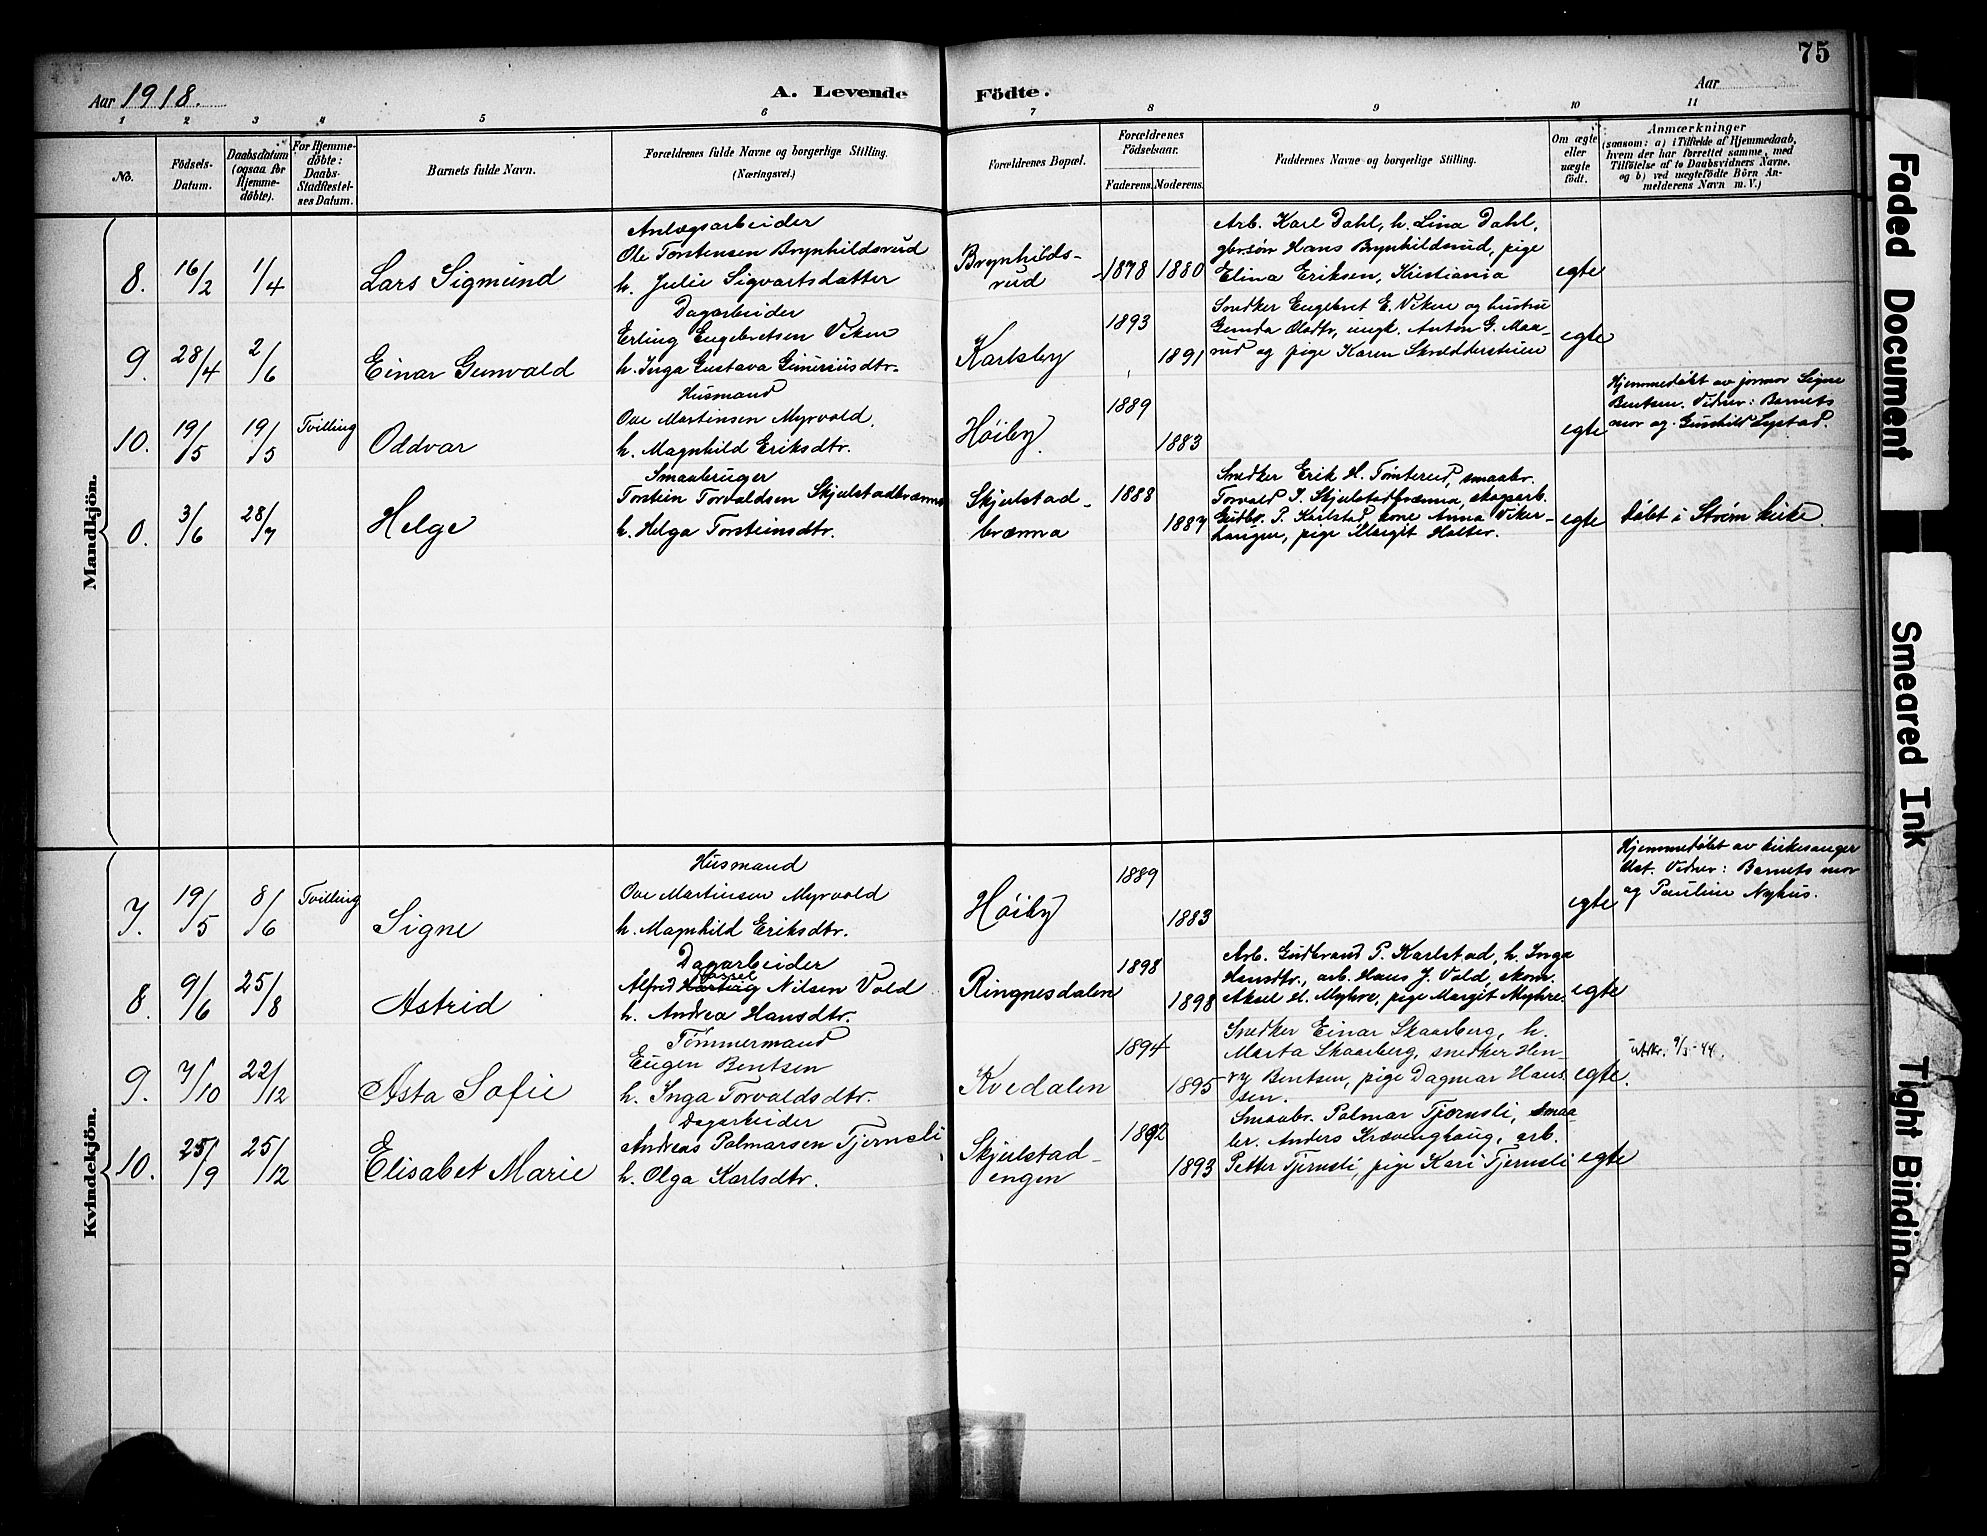 75
Aar 1918.
A. Levende Födte.
Aar
1 2 3 4 5 6 7 8 9 10 11
No.
Födsels-
Datum.
Daabsdatum
(ogsaa for
Hjemme-
döbte).
For Hjemme-
döbte:
Daabs-
Stadfæstel-
ses Datum.
Barnets fulde Navn.
Forældrenes fulde Navne og borgerlige Stilling.
(Næringsvei.)
Forældrenes Bopæl.
Forældrenes
Födselsaar.
Faderens. Moderens.
Faddernes Navne og borgerlige Stilling.
Om ægte
eller
uægte
födt.
Anmærkninger
(saasom: a) i Tilfælde af Hjemmedaab,
hvem der har forrettet samme, med
Tilföielse af to Daabsvidners Navne.
og b) ved uægtefödte Börn An-
melderens Navn m. V.)
Mandkjön.
8. 16/2 1/4 Lars Sigmund
Anlægsarbeider
Ole Torstensen Brynhildsrud
h. Julie Sigvartsdatter
Brynhilds-
rud
1878 1880
Arb. Karl Dahl, h. Lina Dahl,
gbrsøn Hans Brynhildsrud, pige
Elina Eriksen, Kristiania
egte
9. 28/4 2/6 Einar Gunvald
Dagarbeider
Erling Engebretsen Viken
h. Inga Gustava Gunerius dtr.
Karlsby
1893
1891
Snedker Engebret E. Viken og hustru
Gunda Olsdtr, ungk. Anton G. Maa-
rud og pige Karen Skrædderstuen
egte
10. 19/5 19/5 Tvilling Oddvar
Husmand
Ove Martinsen Myrvold,
h. Magnhild Eriksdtr.
Høiby.
1889
1883
egte
Hjemmedøbt av jormor Signe
Bentsen. Vidner: Barnets
mor og Gunhild Lystad.
0. 3/6 28/7 Helge
Smaabruger
Torstein Torvaldsen Skjulstadbrænna
h. Helga Torsteinsdtr.
Skjulstad-
brænna
1888
1887
Snedker Erik H. Tønterud, smaabr.
Torvald I. Skjulstadbrænna, skogsarb.
Gudbr. P. Karlstad, kone Anna Viker-
haugen, pige Margit Halter.
egte
døbt i Strøm kirke.
Kvindekjön.
7. 19/5 8/6 Tvilling Signe
Husmand
Ove Martinsen Myrvold
h. Magnhild Eriksdtr.
Høiby
1889
1883
egte
Hjemmedøbt av kirkesanger
Vidner: Barnets mor
og Pauline Nyhus.
8. 9/6 25/8 Astrid
Dagarbeider
Alfred Nilsen Vold
h. Andrea Hansdtr.
Ringnesdalen
1898
1898
Arb. Gudbrand P. Karlstad, h. Inga
Hansdtr., arb. Hans J. Vold, skom.
Aksel H. Myhre, pige Margit Myhre.
egte
9. 7/10 22/12 Asta Sofie
Tømmermand
Eugen Bentsen
h. Inga Torvaldsdtr.
Kvedalen
1894
1895
Snedker Einar Skaarberg, h.
Marta Skaarberg, snedker Hen-
ry Bentsen, pige Dagmar Han-
sen.
egte.
utskr. 9/3-44.
10. 25/9 25/12 Elisabet Marie
Dagarbeider
Andreas Palmarsen Tjernsli
h. Olga Karlsdtr.
Skjulstad-
engen
1892
1893
Smaabr. Palmar Tjærnsli, smaa
br. Anders Krævenghaug, arb.
Petter Tjernsli, pige Kari Tjernsli
egte
Faded Document
Smeared Ink
Tight Binding